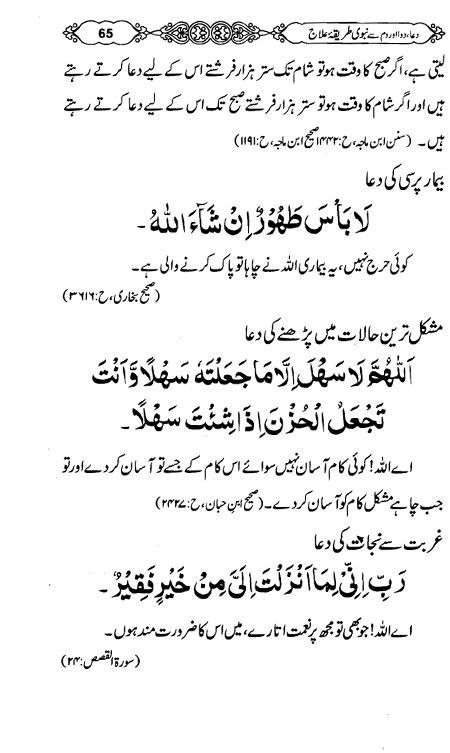 65
دعا، دوا اور دم سے نبوی طریقۂ علاج
لیتی ہے، اگر صبح کا وقت ہو تو شام تک ستر ہزار فرشتے اس کے لیے دعا کرتے رہتے
ہیں اور اگر شام کا وقت ہو تو ستر ہزار فرشتے صبح تک اس کے لیے دعا کرتے رہتے
ہیں۔ (سنن ابن ماجہ، ح: ۱۴۴۲ صحیح ابن ماجہ، ح: ۱۱۹۱)
بیمار پرسی کی دعا
لَا بَأْسَ طَهُوْرٌ اِنْ شَآءَ اللهُ۔
کوئی حرج نہیں، یہ بیماری اللہ نے چاہا تو پاک کرنے والی ہے۔
(صحیح بخاری، ح: ۳۶۱۶)
مشکل ترین حالات میں پڑھنے کی دعا
اَللهُمَّ لَا سَهْلَ اِلَّا مَا جَعَلْتَهٗ سَهْلًا وَّاَنْتَ
تَجْعَلُ الْحُزْنَ اِذَا شِئْتَ سَهْلًا۔
اے اللہ! کوئی کام آسان نہیں سوائے اس کام کے جسے تو آسان کر دے اور تو
جب چاہے مشکل کام کو آسان کر دے۔ (صحیح ابن حبان، ح: ۲۴۲۷)
غربت سے نجات کی دعا
رَبِّ اِنِّیْ لِمَا اَنْزَلْتَ اِلَیَّ مِنْ خَيْرٍ فَقِيْرٌ۔
اے اللہ! جو بھی تو مجھ پر نعمت اتارے، میں اس کا ضرورت مند ہوں۔
(سورۃ القصص: ۲۴)